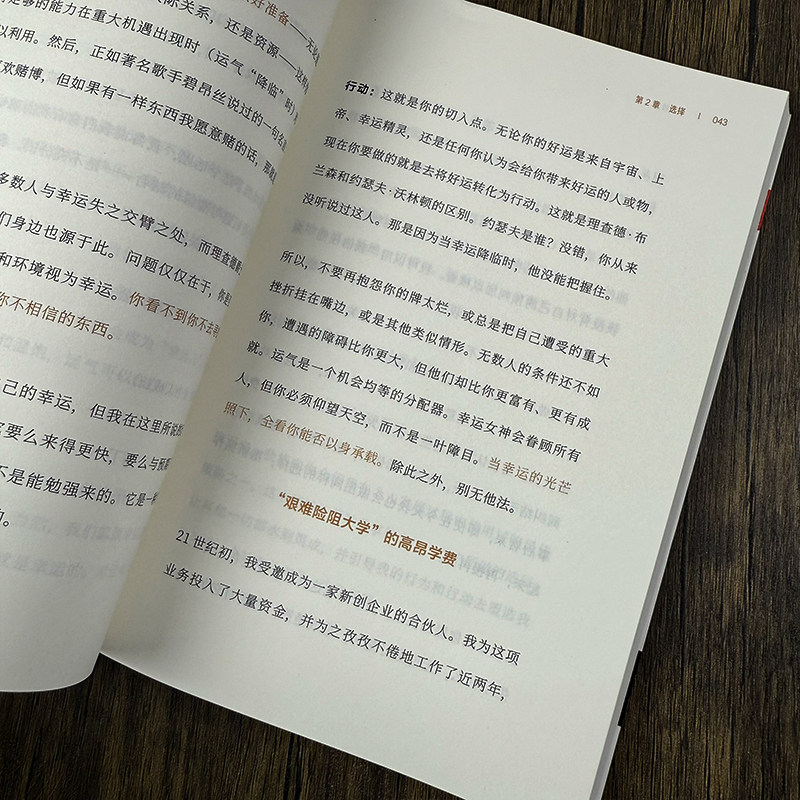 好准备——无论
足够的能力在重大机遇出现时（运气“降临”时）
以利用。然后，正如著名歌手碧昂丝说过的一句名
欢赌博，但如果有一样东西我愿意赌的话，那就
多数人与幸运失之交臂之处，而理查德
们身边也源于此。问题仅仅在于，你
和环境视为幸运。你看不到你不去
你不相信的东西。
己的幸运，但我在这里所说的
它要么来得更快，要么与
不是能勉强来的。它是一
的。
第2章 选择 | 043
行动：这就是你的切入点。无论你的好运是来自宇宙、上
帝、幸运精灵，还是任何你认为会给你带来好运的人或物，
现在你要做的就是去将好运转化为行动。这就是理查德·布
兰森和约瑟夫·沃林顿的区别。约瑟夫是谁？没错，你从来
没听说过这人。那是因为当幸运降临时，他没能把握住。
所以，不要再抱怨你的牌太烂，或总是把自己遭受的重大
挫折挂在嘴边，或是其他类似情形。无数人的条件还不如
你，遭遇的障碍比你更大，但他们却比你更富有、更有成
就。运气是一个机会均等的分配器。幸运女神会眷顾所有
人，但你必须仰望天空，而不是一叶障目。当幸运的光芒
照下，全看你能否以身承载。除此之外，别无他法。
“艰难险阻大学”的高昂学费
21世纪初，我受邀成为一家新创企业的合伙人。我为这项
业务投入了大量资金，并为之孜孜不倦地工作了近两年，